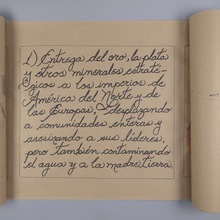 1) Entrega del oro, la plata
y otros minerales estraté-
gicos a los imperios de
América del Norte y de
las Europas, desplazando
a comunidades enteras y
asesinando a sus líderes,
pero también contaminando
el agua y a la madre tierra